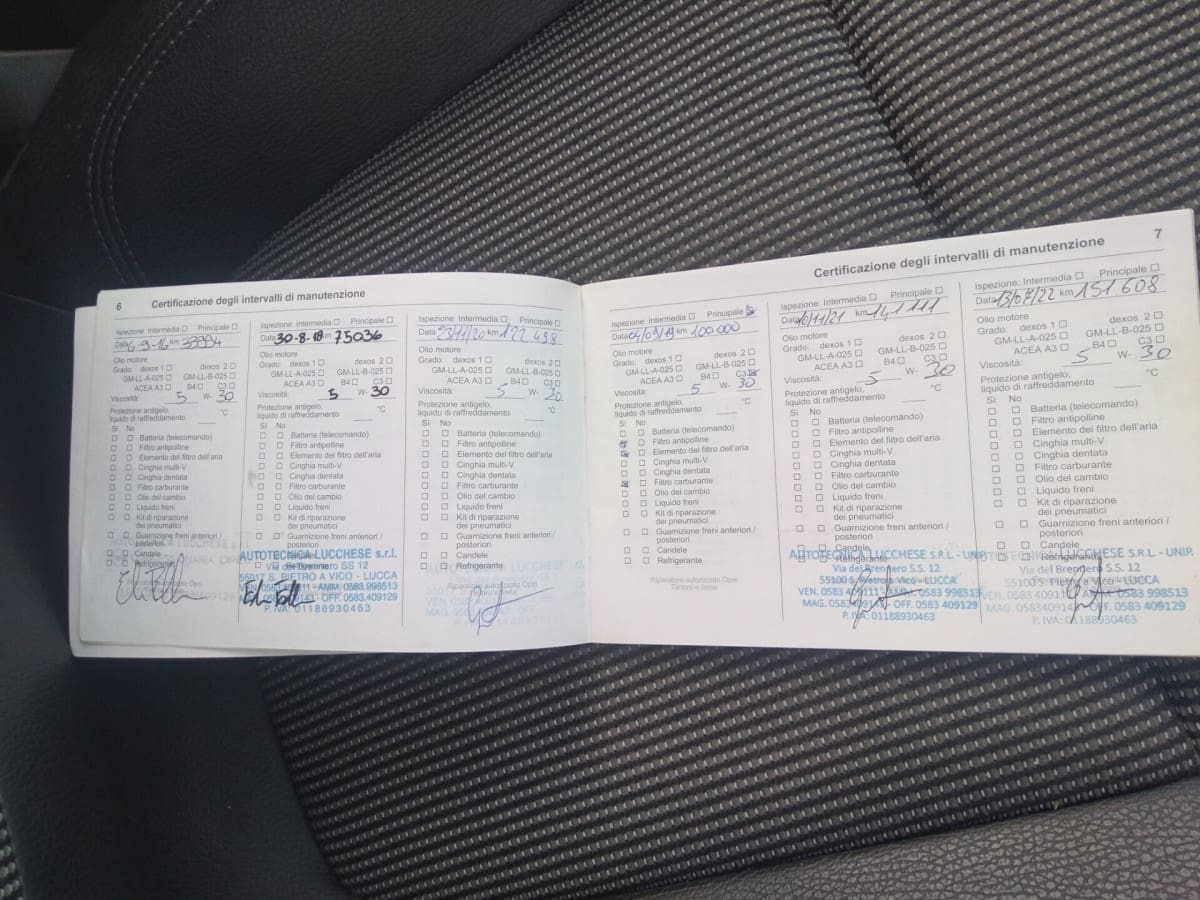 6 Certificazione degli intervalli di manutenzione
Ispezione: Intermedia Principale
Data 6-9-16 km
Olio motore
Grado: dexos 1 dexos 2
GM-LL-A-025 GM-LL-B-025
ACEA A3 B4 C3
Viscosità: 5 W- 30
Protezione antigelo, °C
liquido di raffreddamento
Sì No
Batteria (telecomando)
Filtro antipolline
Elemento del filtro dell'aria
Cinghia multi-V
Cinghia dentata
Filtro carburante
Olio del cambio
Liquido freni
Kit di riparazione
dei pneumatici
Guarnizione freni anteriori /
posteriori
Candele
Refrigerante
Ispezione: Intermedia Principale
Data 30-8-18 km 75036
Olio motore
Grado: dexos 1 dexos 2
GM-LL-A-025 GM-LL-B-025
ACEA A3 B4 C3
Viscosità 5 W- 30
Protezione antigelo, °C
liquido di raffreddamento
Sì No
Batteria (telecomando)
Filtro antipolline
Elemento del filtro dell'aria
Cinghia multi-V
Cinghia dentata
Filtro carburante
Olio del cambio
Liquido freni
Kit di riparazione
dei pneumatici
Guarnizione freni anteriori /
posteriori
AUTOTECNICA LUCCHESE s.r.l.
Via del Brennero SS 12
55017 S. PIETRO A VICO - LUCCA
AMM. 0583 998513
OFF. 0583 409129
P. IVA: 01188930463
Ispezione: Intermedia Principale
Data 23/11/20 km 122 498
Olio motore
Grado: dexos 1 dexos 2
GM-LL-A-025 GM-LL-B-025
ACEA A3 B4 C3
Viscosità: 5 W- 30
Protezione antigelo, °C
liquido di raffreddamento
Sì No
Batteria (telecomando)
Filtro antipolline
Elemento del filtro dell'aria
Cinghia multi-V
Cinghia dentata
Filtro carburante
Olio del cambio
Liquido freni
Kit di riparazione
dei pneumatici
Guarnizione freni anteriori /
posteriori
Candele
Refrigerante
Certificazione degli intervalli di manutenzione 7
Ispezione: Intermedia Principale
Data 04/09/19 km 100.000
Olio motore
Grado: dexos 1 dexos 2
GM-LL-A-025 GM-LL-B-025
ACEA A3 B4 C3
Viscosità: 5 W- 30
Protezione antigelo, °C
liquido di raffreddamento
Sì No
Batteria (telecomando)
Filtro antipolline
Elemento del filtro dell'aria
Cinghia multi-V
Cinghia dentata
Filtro carburante
Olio del cambio
Liquido freni
Kit di riparazione
dei pneumatici
Guarnizione freni anteriori /
posteriori
Candele
Refrigerante
Riparatore autorizzato Opel
Timbro e firma
Ispezione: Intermedia Principale
Data 10/11/21 km 141 111
Olio motore
Grado: dexos 1 dexos 2
GM-LL-A-025 GM-LL-B-025
ACEA A3 B4 C3
Viscosità: 5 W- 30
Protezione antigelo, °C
liquido di raffreddamento
Sì No
Batteria (telecomando)
Filtro antipolline
Elemento del filtro dell'aria
Cinghia multi-V
Cinghia dentata
Filtro carburante
Olio del cambio
Liquido freni
Kit di riparazione
dei pneumatici
Guarnizione freni anteriori /
posteriori
Candele
AUTOTECNICA LUCCHESE S.R.L - UNIP.
Via del Brennero S.S. 12
55100 S. Pietro a Vico - LUCCA
VEN. 0583 409111 - AMM. 0583 998513
MAG. OFF. 0583 409129
P. IVA: 01188930463
Ispezione: Intermedia Principale
Data 13/07/22 km 151 608
Olio motore
Grado: dexos 1 dexos 2
GM-LL-A-025 GM-LL-B-025
ACEA A3 B4 C3
Viscosità: 5 W- 30
Protezione antigelo, °C
liquido di raffreddamento
Sì No
Batteria (telecomando)
Filtro antipolline
Elemento del filtro dell'aria
Cinghia multi-V
Cinghia dentata
Filtro carburante
Olio del cambio
Liquido freni
Kit di riparazione
dei pneumatici
Guarnizione freni anteriori /
posteriori
Candele
Refrigerante
AUTOTECNICA LUCCHESE S.R.L - UNIP.
Via del Brennero S.S. 12
55100 S. Pietro a Vico - LUCCA
VEN. 0583 409111 - AMM. 0583 998513
MAG. OFF. 0583 409129
P. IVA: 01188930463